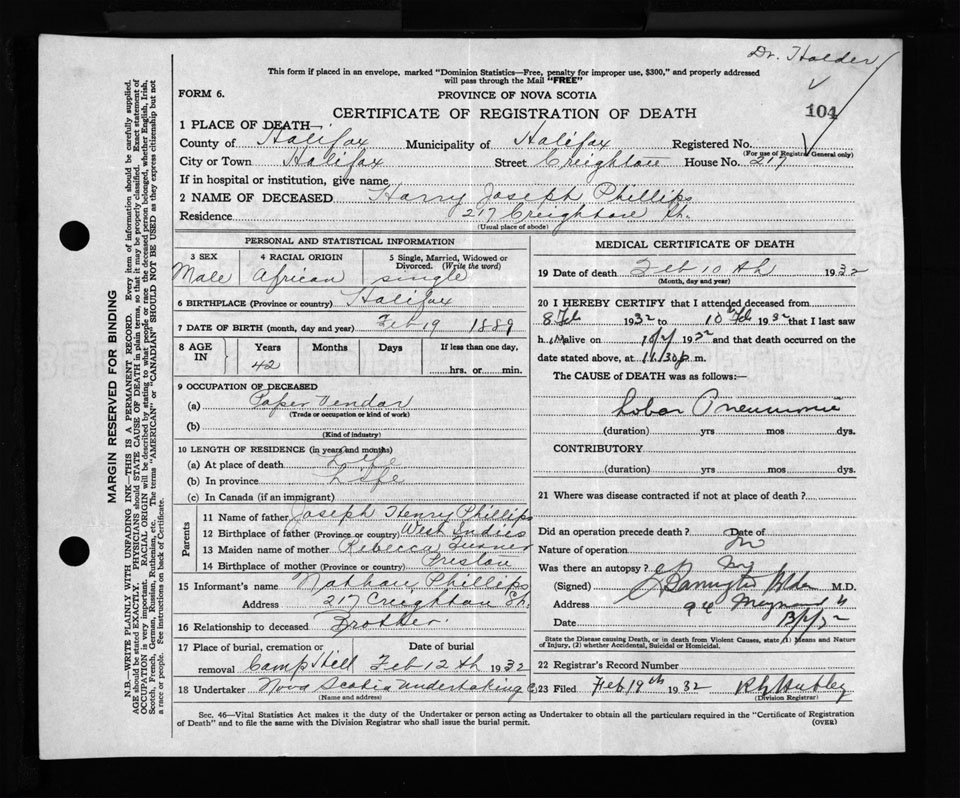 Dr. Holder
This form if placed in an envelope, marked "Dominion Statistics—Free, penalty for improper use, $300," and properly addressed
will pass through the Mail "FREE"
FORM 6.
PROVINCE OF NOVA SCOTIA
104
CERTIFICATE OF REGISTRATION OF DEATH
1 PLACE OF DEATH—
County of Halifax Municipality of Halifax Registered No.
(For use of Registrar General only)
City or Town Halifax Street Creighton House No. 217
If in hospital or institution, give name
2 NAME OF DECEASED Harry Joseph Phillips
Residence 217 Creighton St.
(Usual place of abode)
PERSONAL AND STATISTICAL INFORMATION
3 SEX 4 RACIAL ORIGIN 5 Single, Married, Widowed or
Divorced. (Write the word)
Male African single
6 BIRTHPLACE (Province or country) Halifax
7 DATE OF BIRTH (month, day and year) Feb 19 1889
8 AGE IN Years Months Days If less than one day,
42 hrs. or min.
9 OCCUPATION OF DECEASED
(a) Paper Vendor
(Trade or occupation or kind of work)
(b)
(Kind of industry)
10 LENGTH OF RESIDENCE (in years and months)
(a) At place of death Life
(b) In province Life
(c) In Canada (if an immigrant)
Parents
11 Name of father Joseph Henry Phillips
12 Birthplace of father (Province or country) West Indies
13 Maiden name of mother Rebecca Turner
14 Birthplace of mother (Province or country) Preston
15 Informant's name Nathan Phillips
Address 217 Creighton St.
16 Relationship to deceased Brother
17 Place of burial, cremation or Date of burial
removal Camp Hill Feb 12 th 1932
18 Undertaker Nova Scotia Undertaking Co
(Name and address)
MEDICAL CERTIFICATE OF DEATH
19 Date of death Feb 10 th 1932
(Month, day and year)
20 I HEREBY CERTIFY that I attended deceased from
8 Feb 1932 to 10 Feb 1932 that I last saw
h im alive on 1932 and that death occurred on the
date stated above, at 11.30 p m.
The CAUSE of DEATH was as follows:—
Lobar Pneumonia
(duration) yrs mos dys.
CONTRIBUTORY
(duration) yrs mos dys.
21 Where was disease contracted if not at place of death?
Did an operation precede death? Date of
Nature of operation no
Was there an autopsy? no
(Signed) M.D.
Address 94
Date
State the Disease causing Death, or in death from Violent Causes, state (1) Means and Nature
of Injury, (2) whether Accidental, Suicidal or Homicidal.
22 Registrar's Record Number
23 Filed Feb 19th 1932
(Division Registrar)
Sec. 46—Vital Statistics Act makes it the duty of the Undertaker or person acting as Undertaker to obtain all the particulars required in the "Certificate of Registration
of Death" and to file the same with the Division Registrar who shall issue the burial permit.
(OVER)
MARGIN RESERVED FOR BINDING
N.B.—WRITE PLAINLY WITH UNFADING INK—THIS IS A PERMANENT RECORD. Every item of information should be carefully supplied.
AGE should be stated EXACTLY. PHYSICIANS should STATE CAUSE OF DEATH in plain terms, so that it may be properly classified. Exact statement of
OCCUPATION is very important. RACIAL ORIGIN will be described by stating to what people or race the deceased person belonged, whether English, Irish,
Scotch, French, German, Russian, Ruthenian, etc. The terms "AMERICAN" or "CANADIAN" SHOULD NOT BE USED as they express citizenship but not
a race or people. See instructions on back of Certificate.